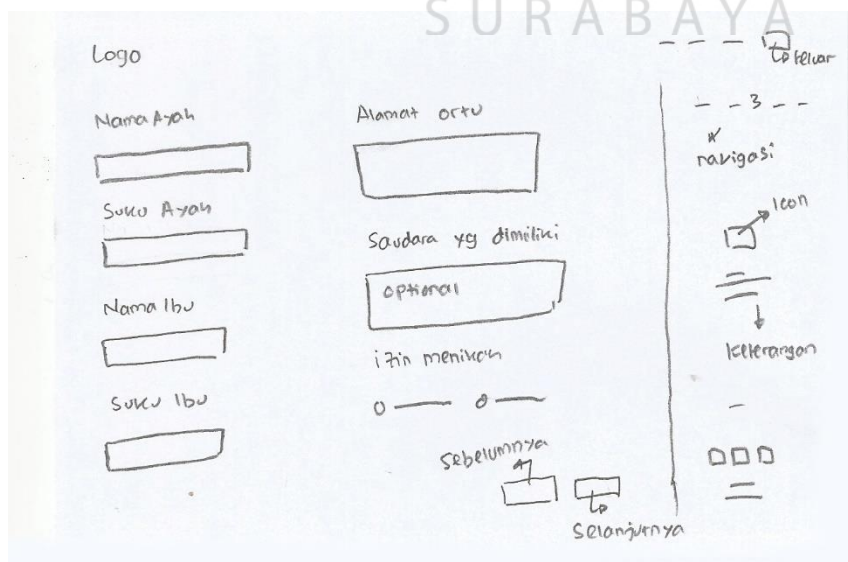 SURABAYA
Logo
keluar
Nama Ayah
Suku Ayah
Nama Ibu
Suku Ibu
Alamat ortu
Saudara yg dimiliki
optional
izin menikah
Sebelumnya
Selanjutnya
3
navigasi
Icon
keterangan